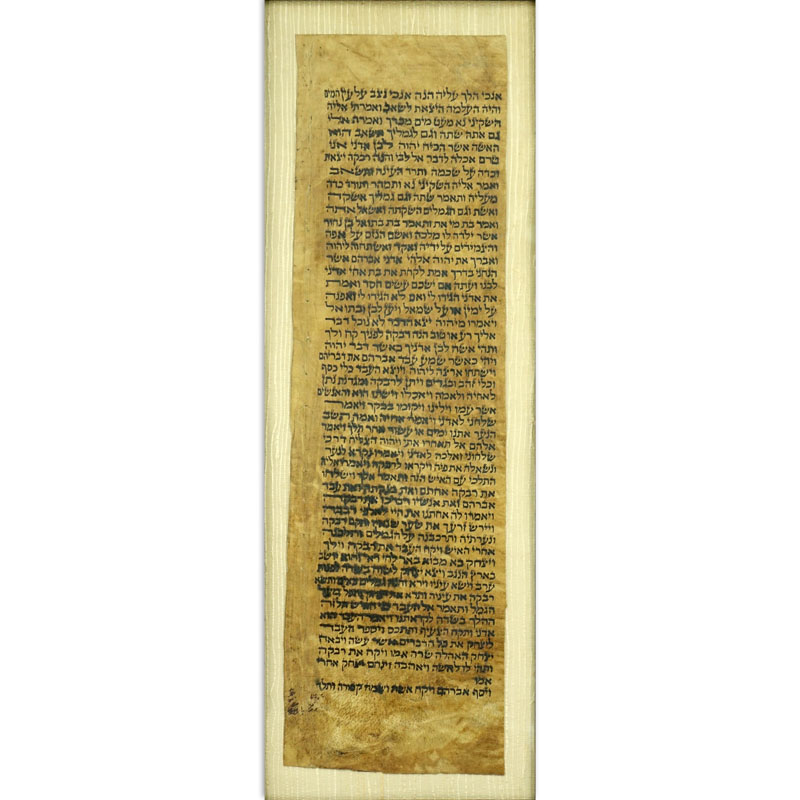 אנכי הלך עליה הנה אנכי נצב על עין המים
והיה העלמה היצאת לשאב ואמרתי אליה
השקיני נא מעט מים מכדך ואמרה אלי
גם אתה שתה וגם לגמליך אשאב הוא
האשה אשר הכיח יהוה לבן אדני אני
טרם אכלה לדבר אל לבי והנה רבקה יצאת
וכדה על שכמה ותרד העינה ותשאב
ואמר אליה השקיני נא ותמהר ותורד כדה
מעליה ותאמר שתה וגם גמליך אשקה
ואשת וגם הגמלים השקתה ואשאל אתה
ואמר בת מי את ותאמר בת בתואל בן נחור
אשר ילדה לו מלכה ואשם הנזם על אפה
והצמידים על ידיה ואקד ואשתחוה ליהוה
ואברך את יהוה אלהי אדני אברהם אשר
הנחני בדרך אמת לקחת את בת אחי אדני
לבנו ועתה אם ישכם עשים חסד ואמת
את אדני הגידו לי ואם לא הגידו לי ואפנה
על ימין או על שמאל ויען לבן ובתואל
ויאמרו מיהוה יצא הדבר לא נוכל דבר
אליך רע או טוב הנה רבקה לפניך קח ולך
ותהי אשה לבן אדניך כאשר דבר יהוה
ויהי כאשר שמע עבד אברהם את דבריהם
וישתחו ארצה ליהוה ויוצא העבד כלי כסף
וכלי זהב ובגדים ויתן לרבקה ומגדנת נתן
לאחיה ולאמה ויאכלו וישתו הוא והאנשים
אשר עמו וילינו ויקומו בבקר ויאמר
שלחני לאדני ויאמר אחיה ואמה תשב
הנער אתנו ימים או עשור אחר תלך ויאמר
אלהם אל תאחרו אתי ויהוה הצליח דרכי
שלחוני ואלכה לאדני ויאמרו נקרא לנער
ונשאלה את פיה ויקראו לרבקה ויאמרו אליה
התלכי עם האיש הזה ותאמר אלך וישלחו
את רבקה אחתם ואת מנקתה ואת עבד
אברהם ואת אנשיו ויברכו את רבקה
ויאמרו לה אחתנו את היי לאלפי רבבה
ויירש זרעך את שער שנאיו ותקם רבקה
ונערתיה ותרכבנה על הגמלים ותלכנה
אחרי האיש ויקח העבד את רבקה וילך
ויצחק בא מבוא באר לחי ראי והוא יושב
בארץ הנגב ויצא יצחק לשוח בשדה לפנות
ערב וישא עיניו וירא והנה גמלים באים ותשא
רבקה את עיניה ותרא את יצחק ותפל מעל
הגמל ותאמר אל העבד מי האיש הלזה
ההלך בשדה לקראתנו ויאמר העבד הוא
אדני ותקח הצעיף ותתכס ויספר העבד
ליצחק את כל הדברים אשר עשה ויבאה
יצחק האהלה שרה אמו ויקח את רבקה
ותהי לו לאשה ויאהבה וינחם יצחק אחרי
אמו
ויסף אברהם ויקח אשה ושמה קטורה ותלד